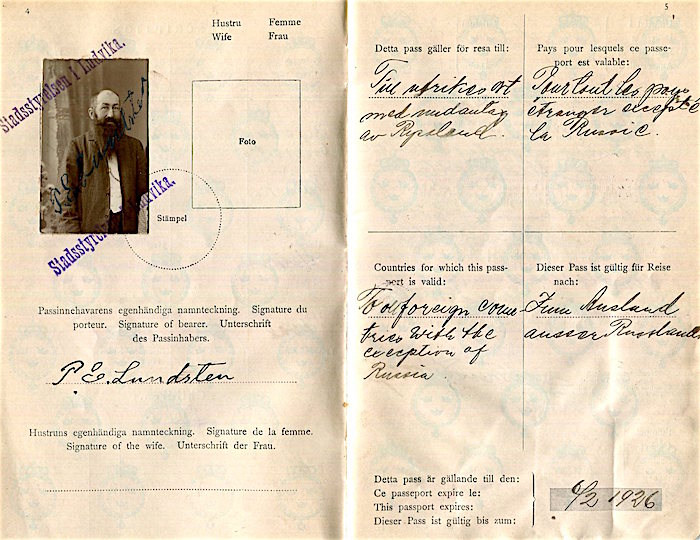 4
Hustru Femme
Wife Frau
Stadsstyrelsen i Ludvika.
Foto
Stämpel
Stadsstyrelsen i Ludvika.
Passinnehavarens egenhändiga namnteckning. Signature du
porteur. Signature of bearer. Unterschrift
des Passinhabers.
P. E. Lundsten
Hustruns egenhändiga namnteckning. Signature de la femme.
Signature of the wife. Unterschrift der Frau.
5
Detta pass gäller för resa till:
Till utrikes ort
med undantag
av Ryssland.
Pays pour lesquels ce passe-
port est valable:
Pour tout les pays
étranger excepté
la Russie.
Countries for which this pass-
port is valid:
To foreign coun
tries with the
exception of
Russia.
Dieser Pass ist gültig für Reise
nach:
Zum Ausland
ausser Russland.
Detta pass är gällande till den:
Ce passeport expire le:
This passport expires:
Dieser Pass ist gültig bis zum:
6/2 1926